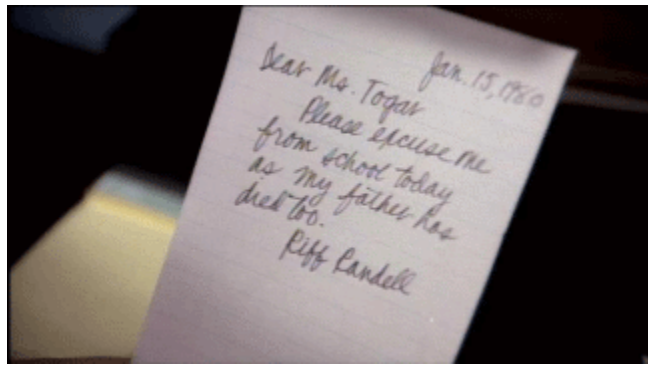 Jan. 15, 1980
Dear Ms. Togar
Please excuse me
from school today
as my father has
died too.
Riff Randell